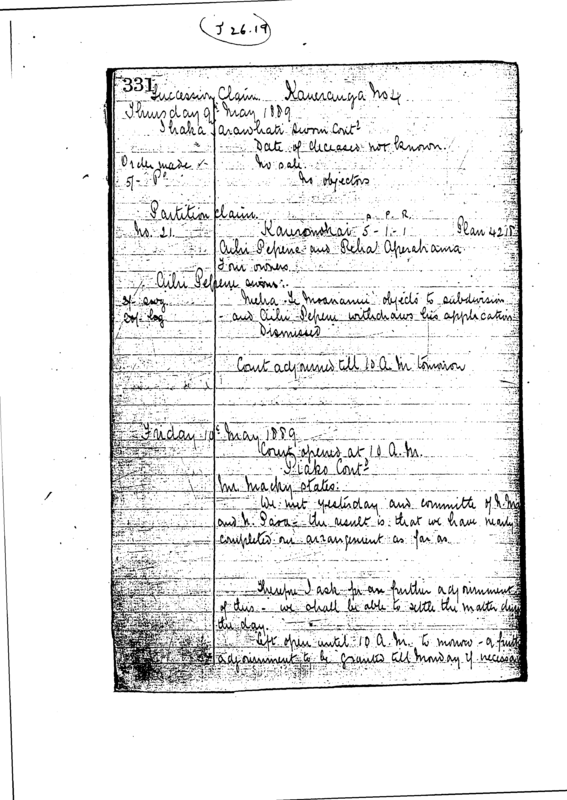 J 26.19
331
Succession Claim Kaueranga No 4
Thursday 9th May 1889
Ihaka sworn Contd
Date of deceased not known.
Order made No sale.
5/- Pd No objectors
Partition claim A. P. R.
No. 21. 5 - 1 - 1 Plan 421
Pepene and Reha Aperahama
Four owners
Pepene sworn:
2/- swg Meha Te Moananui objects to subdivision
20/- - and Pepene withdraws his application
Dismissed
Court adjourned till 10 A.M. tomorrow
Friday 10th May 1889
Court opened at 10 A.M.
Piako Contd
Mr Macky states:
We met yesterday and committee of N.
and N. Paoa - the result is that we have nearly
completed our arrangement as far as
Therefore I ask for an further adjournment
of this - we shall be able to settle the matter
the day.
Left open until 10 A.M. to morrow - a
adjournment to be granted till Monday if